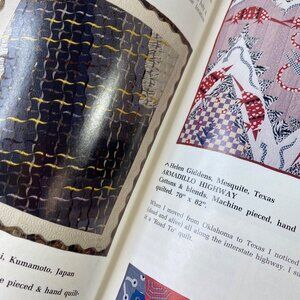 i, Kumamoto, Japan
e pieced & hand quilt-
Helen Giddens, Mesquite, Texas
ARMADILLO HIGHWAY
Cottons & blends. Machine pieced, hand
quilted. 70" x 82".
When I moved from Oklahoma to Texas I noticed
and alive) all along the interstate highway. I
it a "Road To" quilt.